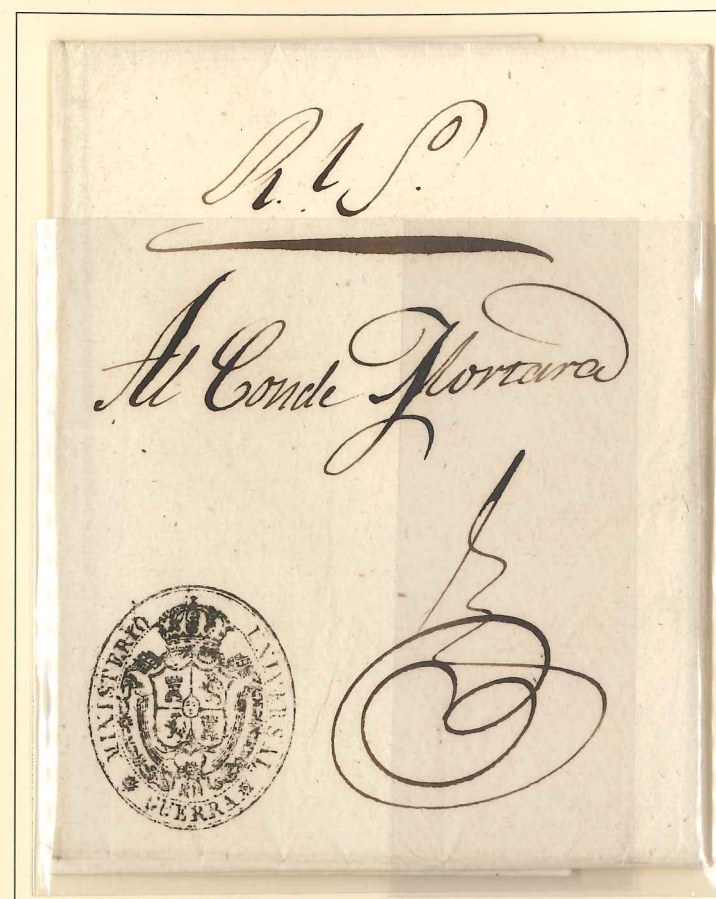 R. l S.
Al Conde Mortara
MINISTERIO UNIVERSAL
GUERRA